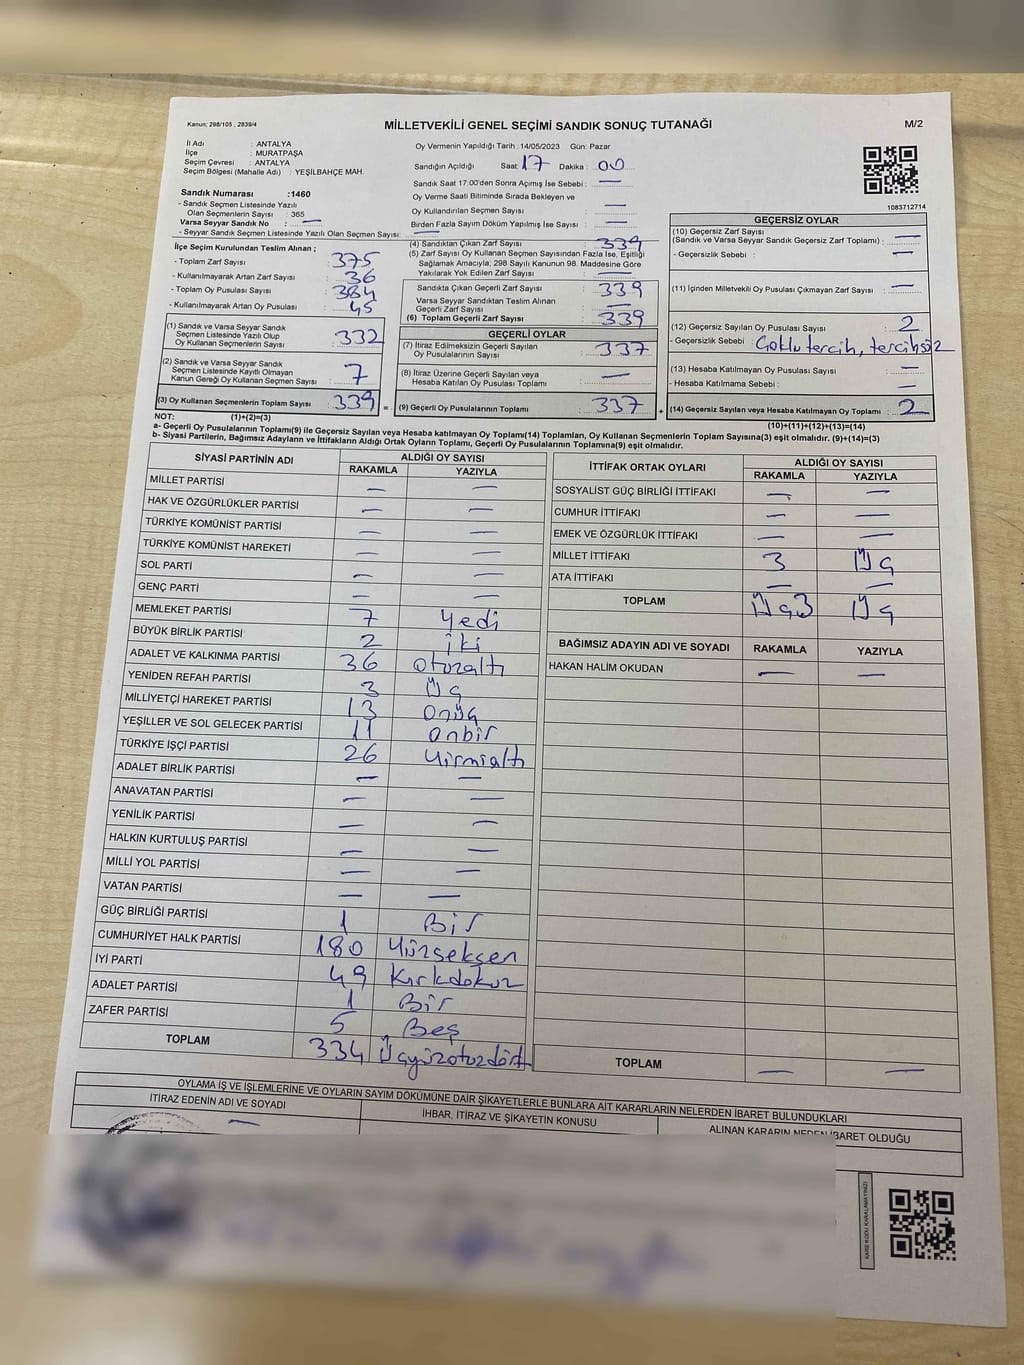 Kanun; 298/105 , 2839/4
MİLLETVEKİLİ GENEL SEÇİMİ SANDIK SONUÇ TUTANAĞI
M/2
İl Adı : ANTALYA
İlçe : MURATPAŞA
Seçim Çevresi : ANTALYA
Seçim Bölgesi (Mahalle Adı) : YEŞİLBAHÇE MAH.
Sandık Numarası :1460
- Sandık Seçmen Listesinde Yazılı
Olan Seçmenlerin Sayısı : 365
Varsa Seyyar Sandık No : —
- Seyyar Sandık Seçmen Listesinde Yazılı Olan Seçmen Sayısı: —
Oy Vermenin Yapıldığı Tarih :14/05/2023 Gün: Pazar
Sandığın Açıldığı Saat: 17 Dakika : 00
Sandık Saat 17:00'den Sonra Açımış İse Sebebi : —
Oy Verme Saati Bitiminde Sırada Bekleyen ve
Oy Kullandırılan Seçmen Sayısı —
Birden Fazla Sayım Döküm Yapılmış İse Sayısı : —
1083712714
İlçe Seçim Kurulundan Teslim Alınan ;
- Toplam Zarf Sayısı : 375
- Kullanılmayarak Artan Zarf Sayısı : 36
- Toplam Oy Pusulası Sayısı : 384
- Kullanılmayarak Artan Oy Pusulası : 45
(1) Sandık ve Varsa Seyyar Sandık
Seçmen Listesinde Yazılı Olup
Oy Kullanan Seçmenlerin Sayısı : 332
(2) Sandık ve Varsa Seyyar Sandık
Seçmen Listesinde Kayıtlı Olmayan
Kanun Gereği Oy Kullanan Seçmen Sayısı : 7
(3) Oy Kullanan Seçmenlerin Toplam Sayısı : 339 =
(4) Sandıktan Çıkan Zarf Sayısı : 339
(5) Zarf Sayısı Oy Kullanan Seçmen Sayısından Fazla İse, Eşitliği
Sağlamak Amacıyla; 298 Sayılı Kanunun 98. Maddesine Göre
Yakılarak Yok Edilen Zarf Sayısı : —
Sandıkta Çıkan Geçerli Zarf Sayısı : 339
Varsa Seyyar Sandıktan Teslim Alınan
Geçerli Zarf Sayısı : —
(6) Toplam Geçerli Zarf Sayısı : 339
GEÇERLİ OYLAR
(7) İtiraz Edilmeksizin Geçerli Sayılan
Oy Pusulalarının Sayısı : 337
(8) İtiraz Üzerine Geçerli Sayılan veya
Hesaba Katılan Oy Pusulası Toplamı : —
(9) Geçerli Oy Pusulalarının Toplamı : 337 +
GEÇERSİZ OYLAR
(10) Geçersiz Zarf Sayısı
(Sandık ve Varsa Seyyar Sandık Geçersiz Zarf Toplamı) : —
- Geçersizlik Sebebi : —
(11) İçinden Milletvekili Oy Pusulası Çıkmayan Zarf Sayısı : —
(12) Geçersiz Sayılan Oy Pusulası Sayısı : 2
- Geçersizlik Sebebi : Çoklu tercih, tercihsiz
(13) Hesaba Katılmayan Oy Pusulası Sayısı : —
- Hesaba Katılmama Sebebi : —
(14) Geçersiz Sayılan veya Hesaba Katılmayan Oy Toplamı : 2
NOT: (1)+(2)=(3)
(10)+(11)+(12)+(13)=(14)
a- Geçerli Oy Pusulasının Toplamı(9) ile Geçersiz Sayılan veya Hesaba katılmayan Oy Toplam(14) Toplamları, Oy Kullanan Seçmenlerin Toplam Sayısına(3) eşit olmalıdır. (9)+(14)=(3)
b- Siyasi Partilerin, Bağımsız Adayların ve İttifakların Aldığı Ortak Oyların Toplamı, Geçerli Oy Pusulalarının Toplamına(9) eşit olmalıdır.
SİYASİ PARTİNİN ADI ALDIĞI OY SAYISI
RAKAMLA YAZIYLA
MİLLET PARTİSİ — —
HAK VE ÖZGÜRLÜKLER PARTİSİ — —
TÜRKİYE KOMÜNİST PARTİSİ — —
TÜRKİYE KOMÜNİST HAREKETİ — —
SOL PARTİ — —
GENÇ PARTİ — —
MEMLEKET PARTİSİ 7 Yedi
BÜYÜK BİRLİK PARTİSİ 2 iki
ADALET VE KALKINMA PARTİSİ 36 otuzaltı
YENİDEN REFAH PARTİSİ 3 Üç
MİLLİYETÇİ HAREKET PARTİSİ 13 onüç
YEŞİLLER VE SOL GELECEK PARTİSİ 11 onbir
TÜRKİYE İŞÇİ PARTİSİ 26 Yirmialtı
ADALET BİRLİK PARTİSİ — —
ANAVATAN PARTİSİ — —
YENİLİK PARTİSİ — —
HALKIN KURTULUŞ PARTİSİ — —
MİLLİ YOL PARTİSİ — —
VATAN PARTİSİ — —
GÜÇ BİRLİĞİ PARTİSİ 1 Bir
CUMHURİYET HALK PARTİSİ 180 Yüzseksen
İYİ PARTİ 49 Kırkdokuz
ADALET PARTİSİ 1 Bir
ZAFER PARTİSİ 5 Beş
TOPLAM 334 Üçyüzotuzdört
İTTİFAK ORTAK OYLARI ALDIĞI OY SAYISI
RAKAMLA YAZIYLA
SOSYALİST GÜÇ BİRLİĞİ İTTİFAKI — —
CUMHUR İTTİFAKI — —
EMEK VE ÖZGÜRLÜK İTTİFAKI — —
MİLLET İTTİFAKI 3 Üç
ATA İTTİFAKI — —
TOPLAM Üç3 Üç
BAĞIMSIZ ADAYIN ADI VE SOYADI RAKAMLA YAZIYLA
HAKAN HALİM OKUDAN — —
TOPLAM — —
OYLAMA İŞ VE İŞLEMLERİNE VE OYLARIN SAYIM DÖKÜMÜNE DAİR ŞİKAYETLERLE BUNLARA AİT KARARLARIN NELERDEN İBARET BULUNDUKLARI
İTİRAZ EDENİN ADI VE SOYADI İHBAR, İTİRAZ VE ŞİKAYETİN KONUSU ALINAN KARARIN NEDEN İBARET OLDUĞU
—
KARE KODU KARALAMAYINIZ!